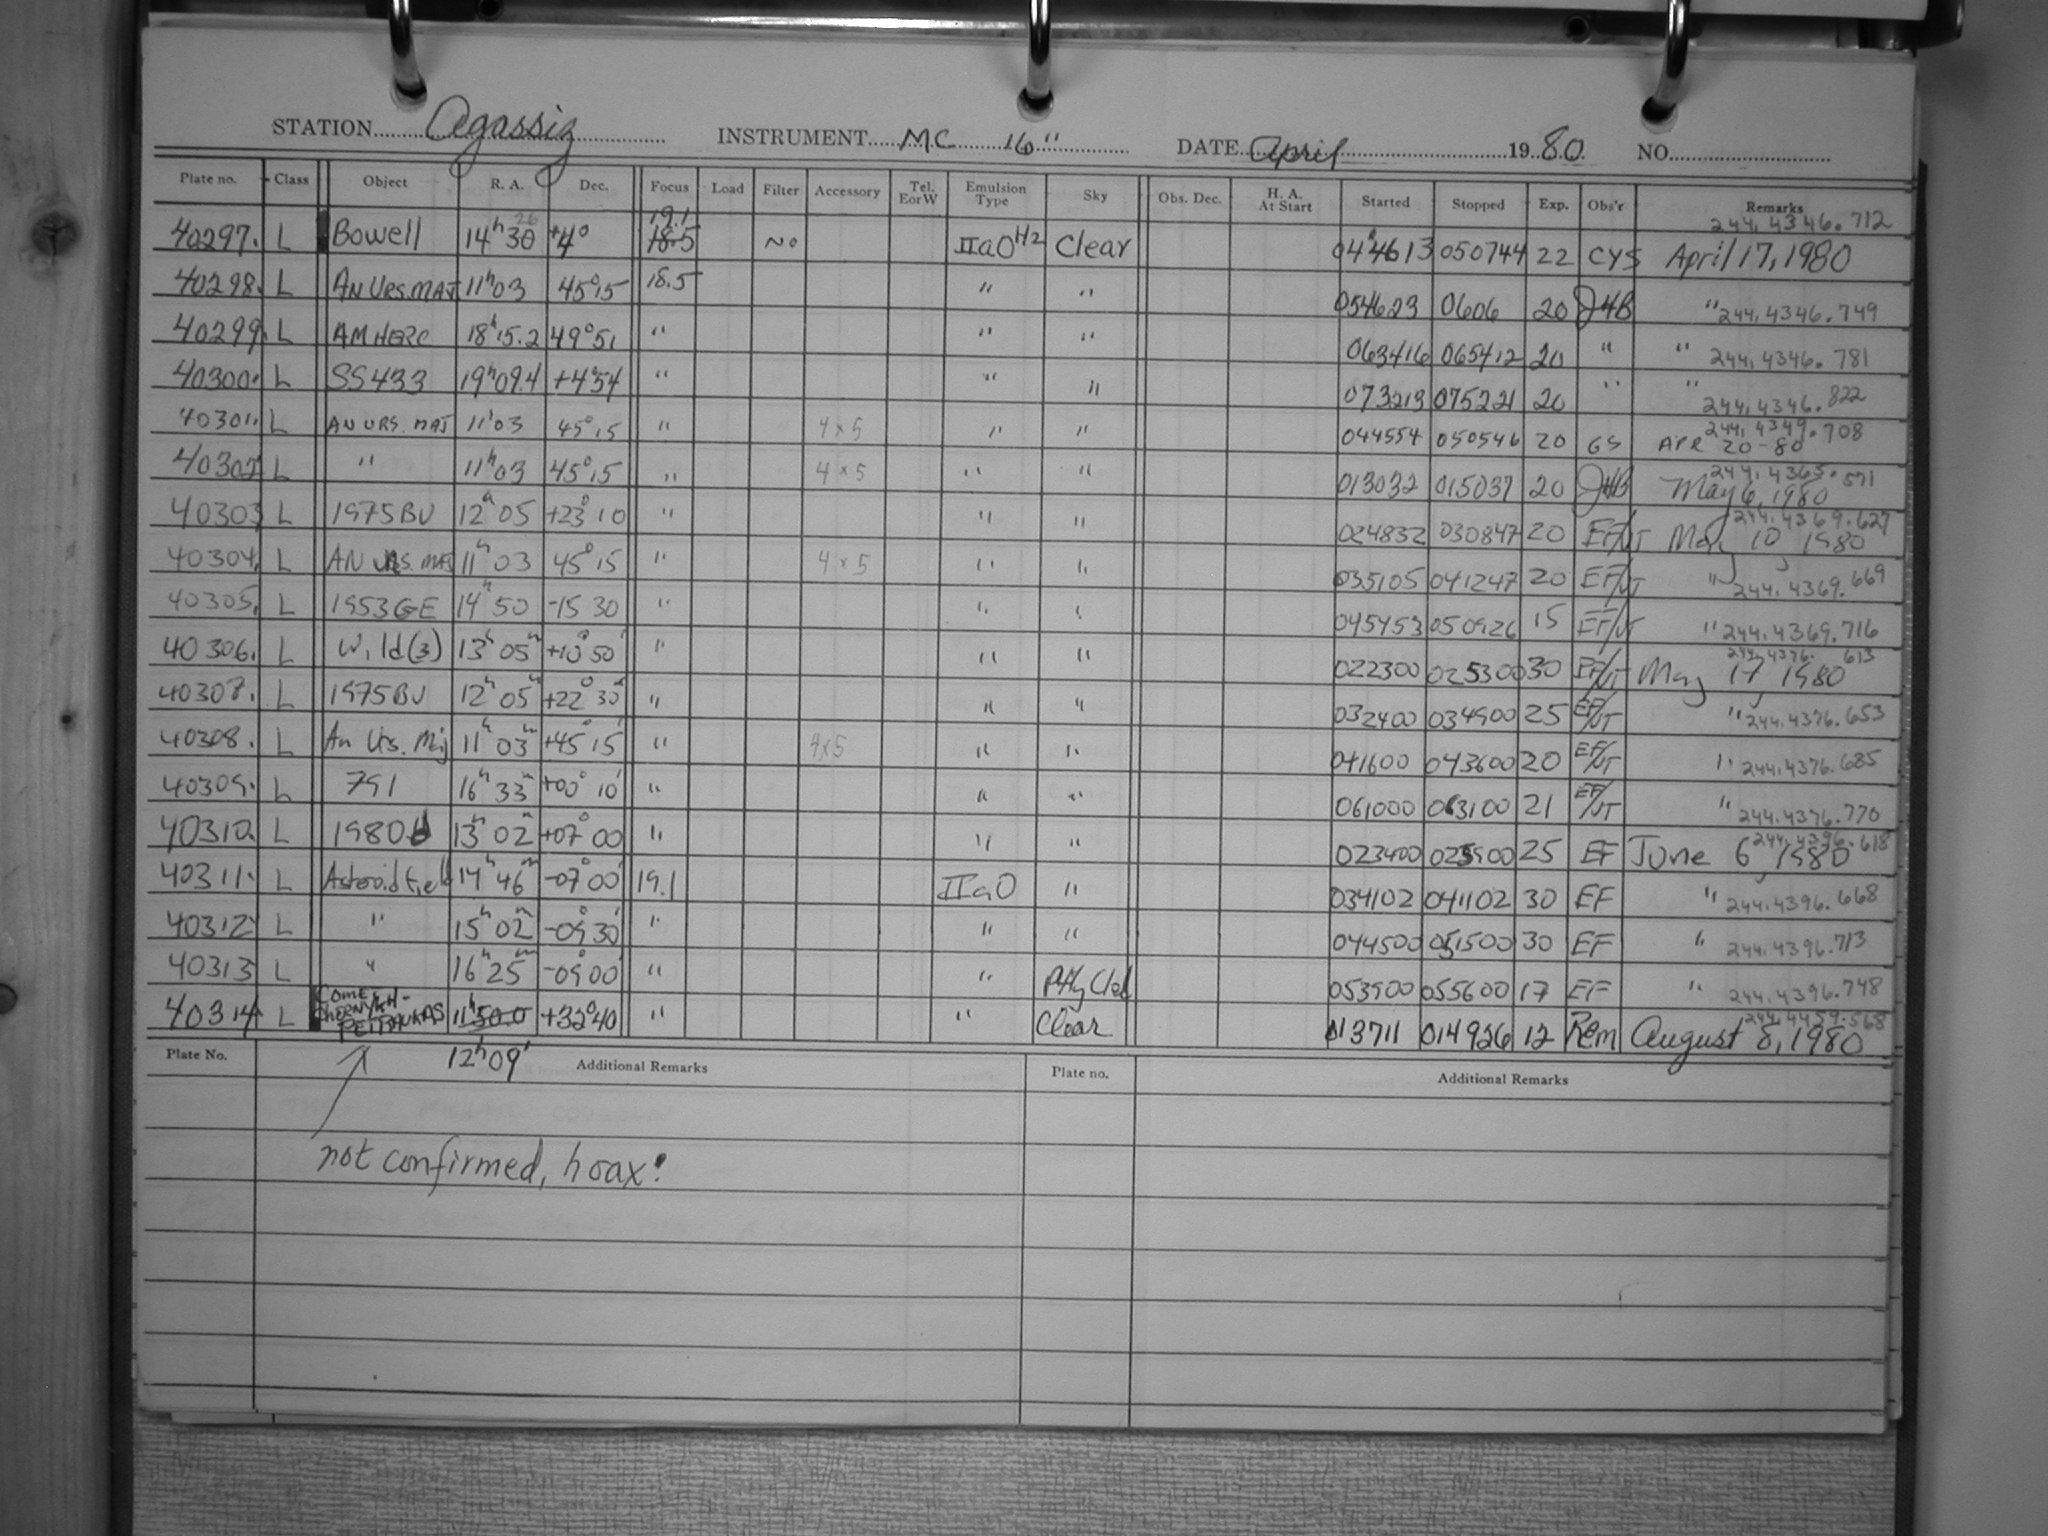 STATION Agassiz INSTRUMENT MC 16" DATE April 1980 NO.
Plate no. Class Object R. A. Dec. Focus Load Filter Accessory Tel. E or W Emulsion Type Sky Obs. Dec. H. A. At Start Started Stopped Exp. Obs'r Remarks
40297. L Bowell 14h 30 26 +4° 18.5 19.1 No IIaO H2 Clear 044613 050744 22 CYS April 17, 1980 244,4346.712
40298. L AN URS. MAJ 11h03 45°15 18.5 " " 054623 0606 20 JHB " 244,4346.749
40299. L AM HERC 18h15.2 49°51 " " " 063416 065412 20 " " 244,4346.781
40300. L SS433 19h09.4 +4°54 " " " 073213 075221 20 " " 244,4346.822
40301. L AN URS. MAJ 11h03 45°15 " 4x5 " " 044554 050546 20 GS APR 20-80 244,4349.708
40302 L " 11h03 45°15 " 4x5 " " 013032 015037 20 JHB May 6, 1980 244,4365.571
40303 L 1975BU 12h05 +23°10 " " " 024832 030847 20 EF/JT May 10, 1980 244,4369.627
40304. L AN URS. MAJ 11h03 45°15 " 4x5 " " 035105 041247 20 EF/JT " 244,4369.669
40305. L 1953GE 14h50 -15 30 " " " 045453 050926 15 EF/JT " 244,4369.716
40306. L Wild(3) 13h05m +10°50' " " " 022300 025300 30 EF/JT May 17, 1980 244,4376.613
40307. L 1975BU 12h05m +22°30' " " " 032400 034900 25 EF/JT " 244,4376.653
40308. L An Urs. Maj 11h03m +45°15' " 4x5 " " 041600 043600 20 EF/JT " 244,4376.685
40309. L 791 16h33m +00°10' " " " 061000 063100 21 EF/JT " 244,4376.770
40310. L 1980 13h02m +07°00 " " " 023400 025900 25 EF June 6, 1980 244,4396.618
40311. L Asteroid Field 14h46m -07°00' 19.1 IIaO " 034102 041102 30 EF " 244,4396.668
40312 L " 15h02m -09°30' " " " 044500 051500 30 EF " 244,4396.713
40313 L " 16h25m -09°00' " " Ptly Cld 053900 055600 17 EF " 244,4396.748
40314 L COMET CHERNYKH-PETRAUKAS 11h50.0 +32°40 " " Clear 013711 014926 12 Rem August 8, 1980 244,4459.568
Plate No. 12h09' Additional Remarks Plate no. Additional Remarks
not confirmed, hoax!